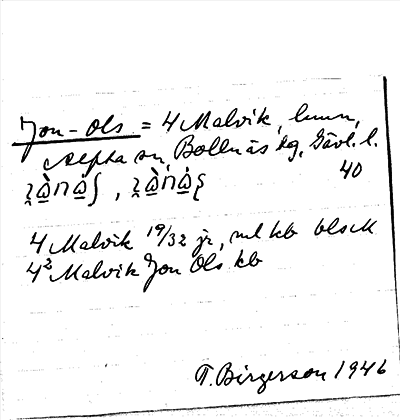 Jon-Ols = 4 Malvik, hmn,
Alfta sn, Bollnäs tg, Gävl. l.
40
4 Malvik 19/32 jr, ml kb block
4² Malvik Jon Ols kb
T. Birgerson 1946